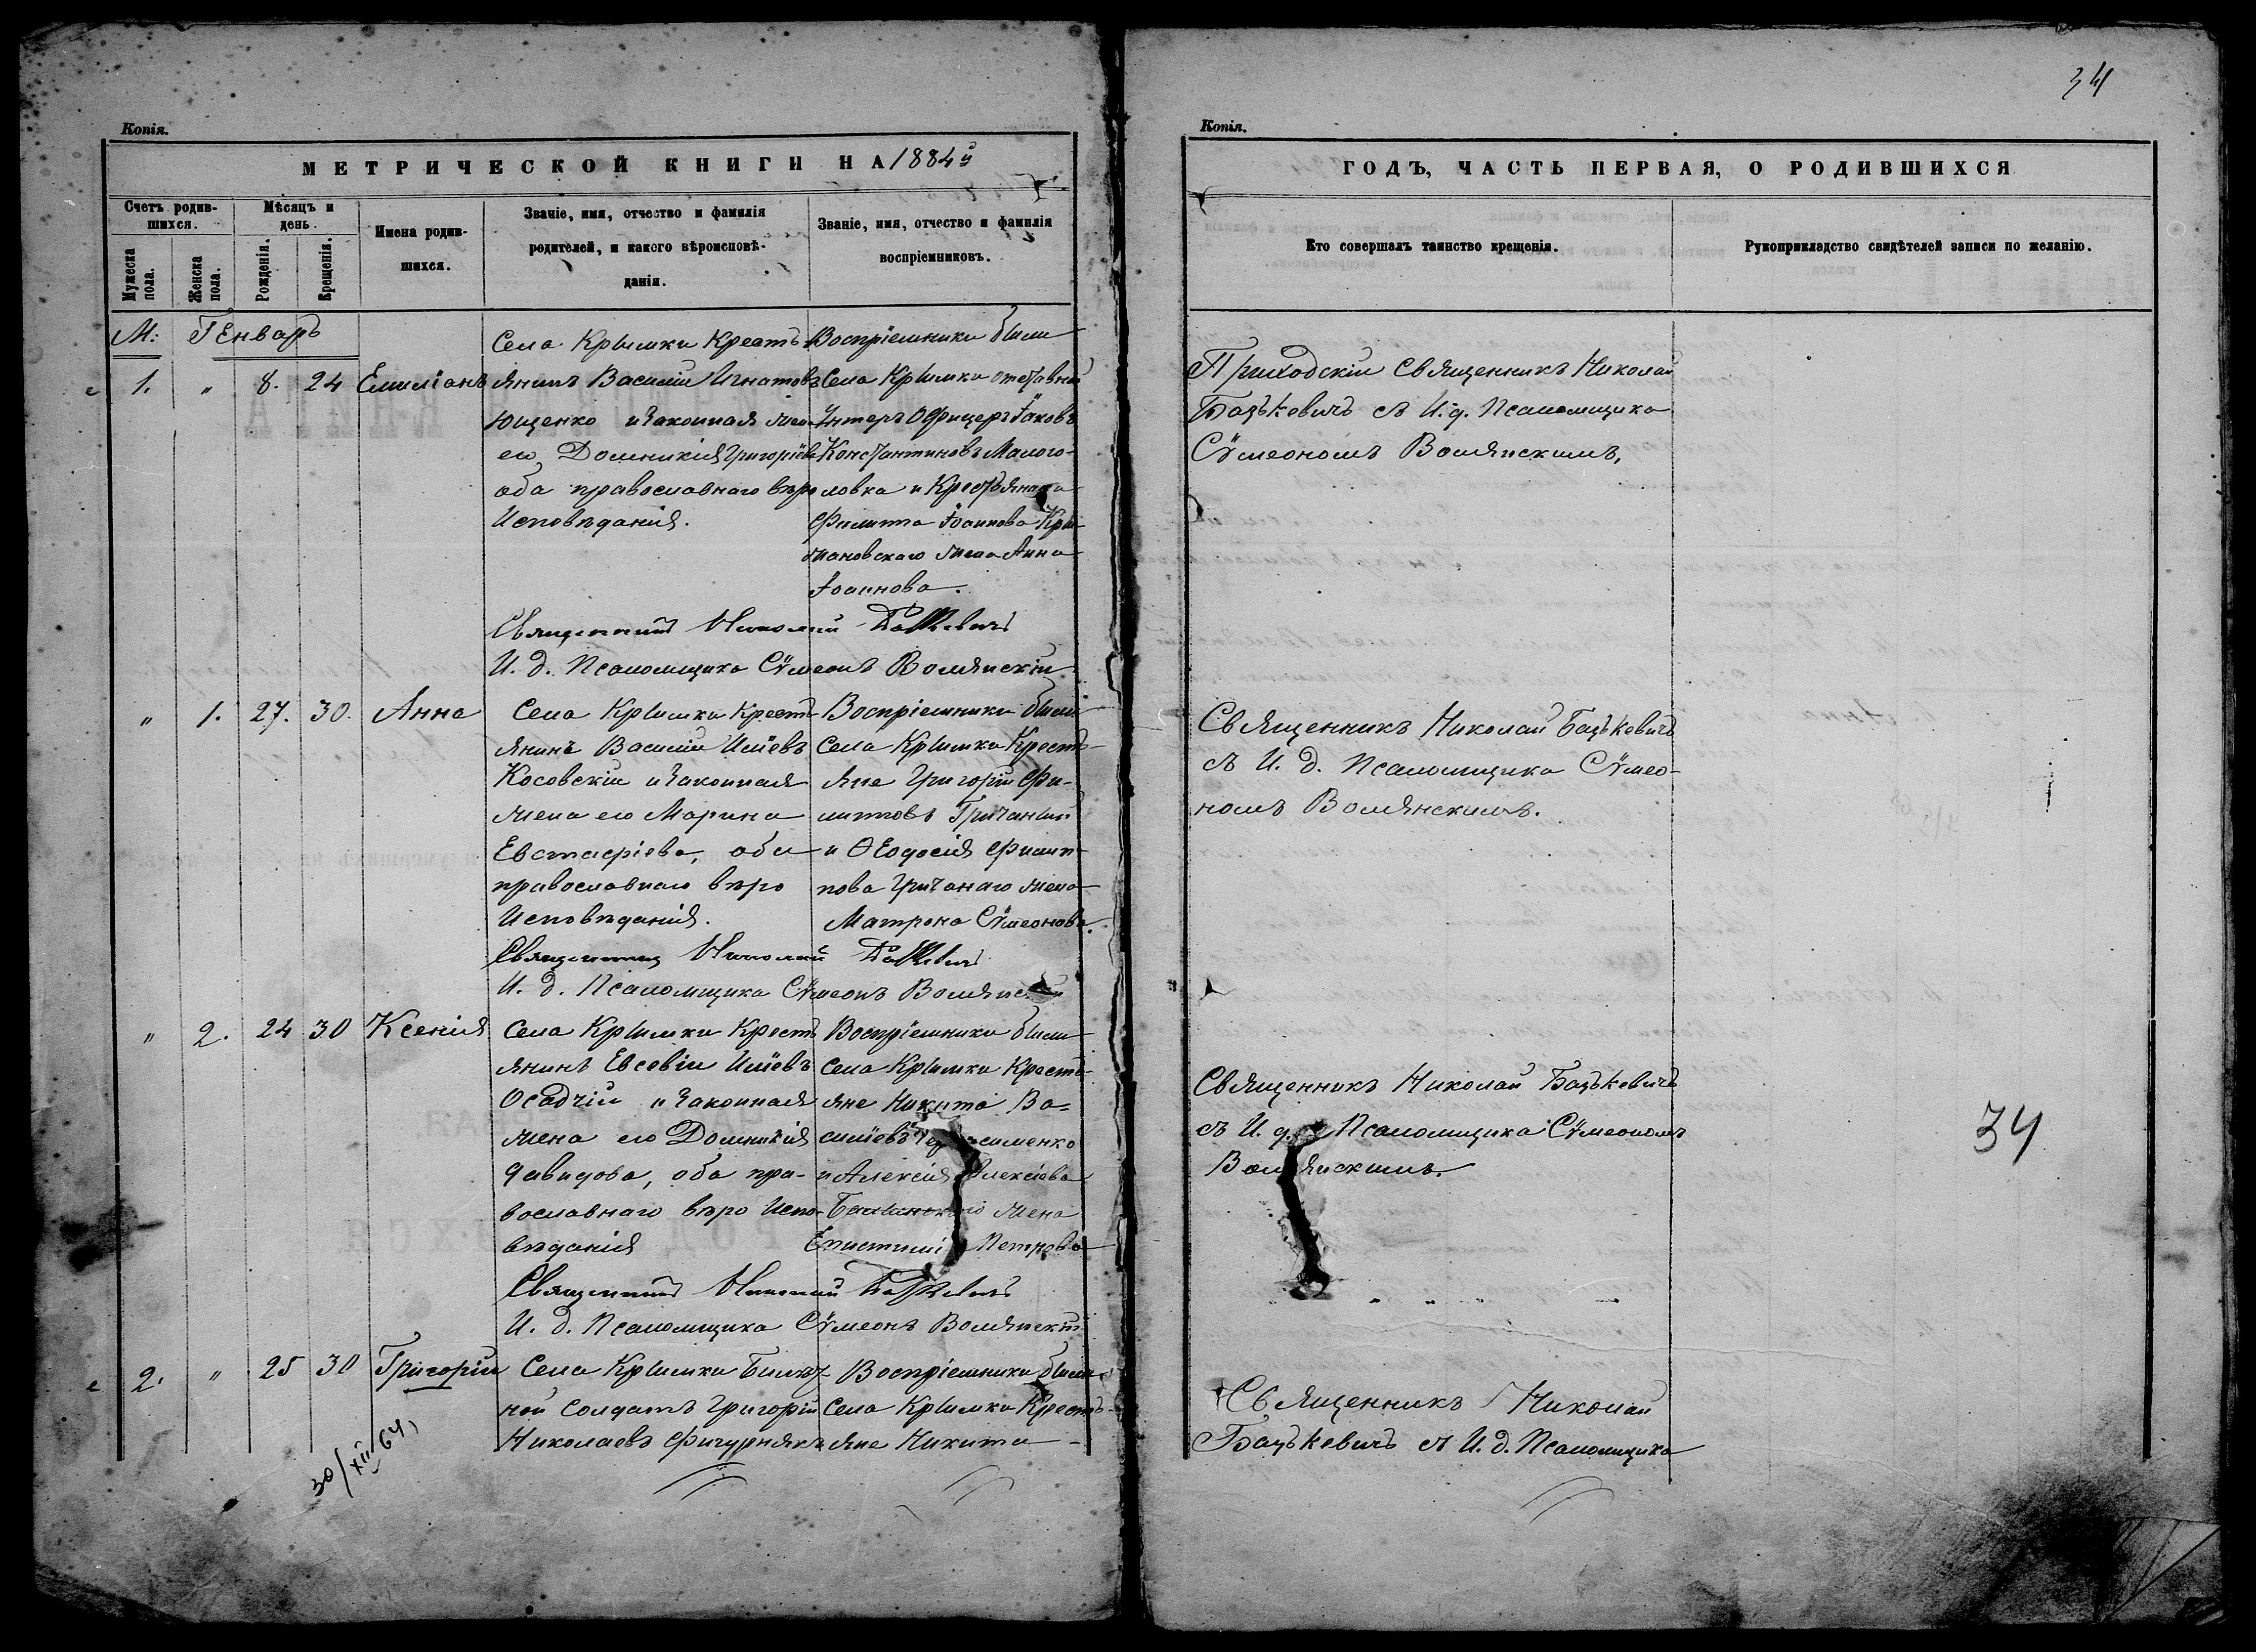 34
Копія.
МЕТРИЧЕСКОЙ КНИГИ НА 1884й
Счетъ родив-
шихся.
Мужеска
пола.
Женска
пола.
Мѣсяцъ и
день.
Рожденія.
Крещенія.
Имена родив-
шихся.
Званіе, имя, отчество и фамилія
родителей, и какого вѣроисповѣ-
данія.
Званіе, имя, отчество и фамилія
воспріемниковъ.
М: Генварь
1. " 8. 24 Емиліанъ
Села Крымки Кресть-
янинъ Василій Игнатовъ
Ющенко и законная жена
его Домникія Григоріева
оба православнаго вѣро
Исповѣданія.
Воспріемники были
Села Крымки отставной
Унтеръ Офицеръ Іаковъ
Константиновъ Малого-
ловка и Крестьянина
Филиппа Іоаннова
жена Анна
Іоаннова.
Священникъ Николай Бацькевичъ
И. д. Псаломщика Сѵмеонъ Волянскій
" 1. 27. 30. Анна
Села Крымки Кресть-
янинъ Василій Иліевъ
Косовскій и законная
жена его Марина
Евстафіева, оба
православнаго вѣро
Исповѣданія.
Воспріемники были
Села Крымки Кресть-
яне Григорій Фи-
липповъ Гричаный
и Ѳеодосія Филип-
пова Гричанаго жена
Матрона Сѵмеонова.
Священникъ Николай Бацькевичъ
И. д. Псаломщика Сѵмеонъ Волянскій
" 2. 24 30 Ксенія
Села Крымки Кресть
янинъ Евсевій Иліевъ
Осадчій и законная
жена его Домникія
Давидова, оба пра-
вославнаго вѣро Испо-
вѣданія
Воспріемники были
Села Крымки Кресть-
яне Никита Ва-
силіевъ
и Алексія Алексіева
жена
Петрова
Священникъ Николай Бацькевичъ
И. д. Псаломщика Сѵмеонъ Волянскій
2. " 25 30 Григорій
Села Крымки Билет-
ной Солдатъ Григорій
Николаевъ Фигурнякъ
Воспріемники были
Села Крымки Кресть-
яне Никита
30/XII 64
Копія.
ГОДЪ, ЧАСТЬ ПЕРВАЯ, О РОДИВШИХСЯ
Кто совершалъ таинство крещенія.
Рукоприкладство свидѣтелей записи по желанію.
Приходскій Священникъ Николай
Бацькевичъ съ И. д. Псаломщика
Сѵмеономъ Волянскимъ,
Священникъ Николай Бацькевичъ
съ И. д. Псаломщика Сѵмео-
номъ Волянскимъ.
Священникъ Николай Бацькевичъ
съ И. д. Псаломщика Сѵмеономъ
Волянскимъ.
34
Священникъ Николай
Бацькевичъ съ И. д. Псаломщика